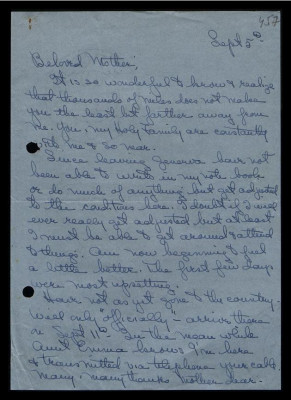 457
Sept 5th
Beloved Mother,
It is so wonderful to know & realize
that thousands of miles does not make
you the least bit farther away from
me. You, my Holy Family are constantly
with me & so near.
Since leaving Geneva have not
been able to write in my note book
or do much of anything but get adjusted
to the conditions here. I doubt if I will
ever really get adjusted but at least
I must be able to get around & attend
to things. Am now beginning to feel
a little better. The first few days
were most upsetting.
Have not as yet gone to the country.
Will only "officially" arrive there
on Sept 11th. In the mean while
Aunt Emma knows I'm here
& transmitted via telephone your cable
Many, many thanks mother dear.